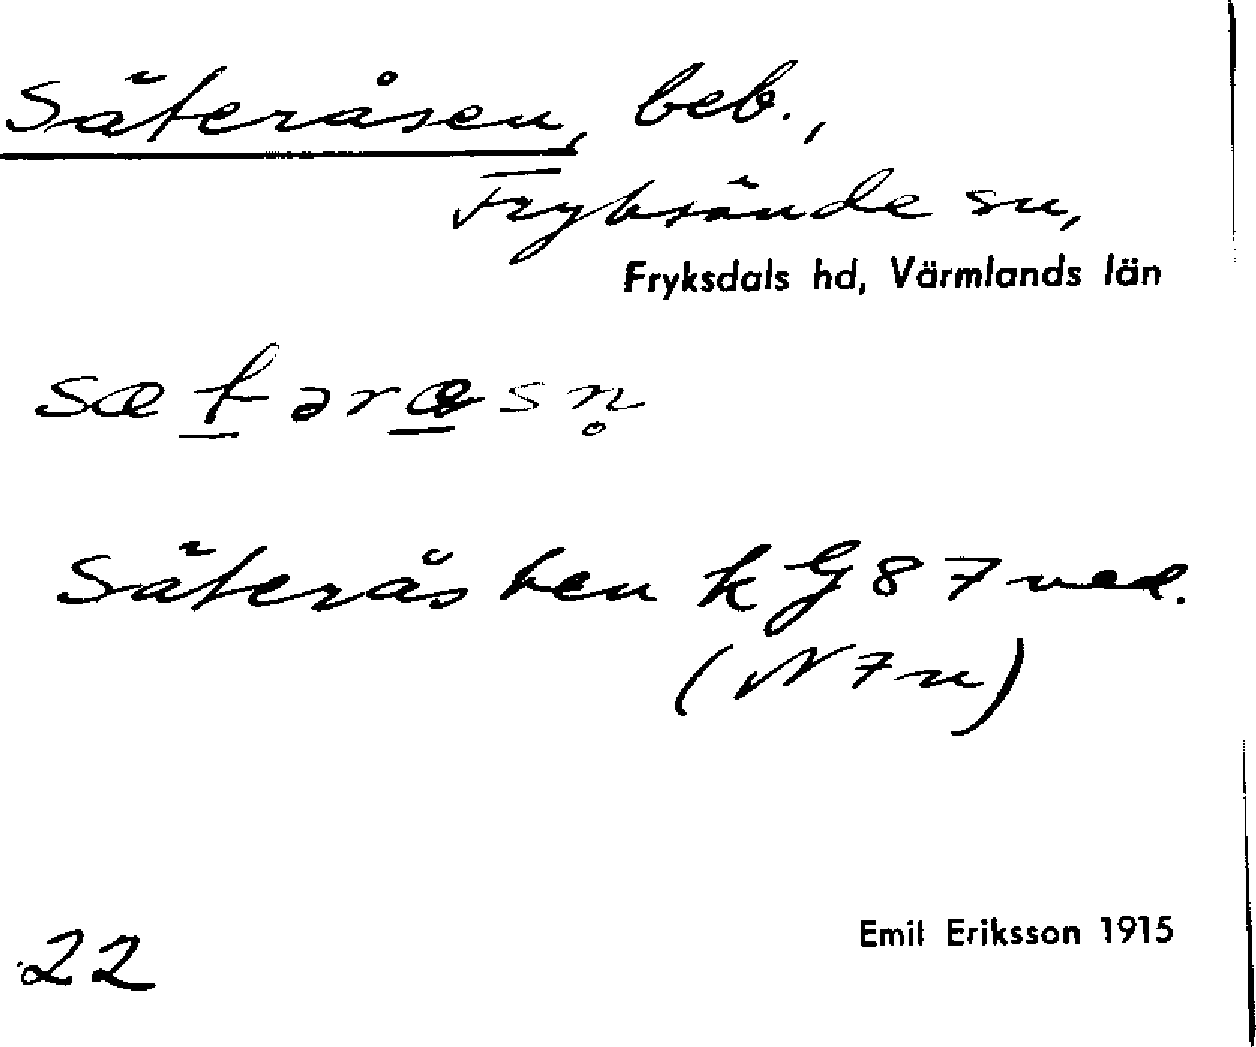 Säteråsen, beb.,
Fryksände sn,
Fryksdals hd, Värmlands län
sætəræsn̥
Säteråsben kG87 ned.
(N7n)
22
Emil Eriksson 1915